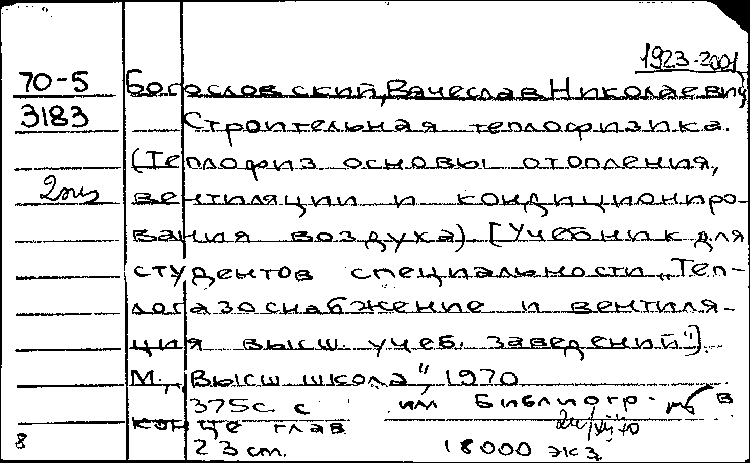 1923-2001
70-5 Богословский, Вячеслав Николаевич
3183 Строительная теплофизика.
(Теплофиз основы отопления,
2 экз вентиляции и кондициониро-
вания воздуха). [Учебник для
студентов специальности „Теп-
логазоснабжение и вентиля-
ция высш. учеб. заведений"].
М., „Высш школа", 1970
375с. с илл Библиогр. в
конце глав
8 23 cm. 18000 экз.